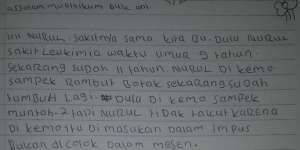 assalam mualaikum buk ani
ini Nurul. sakitnya sama kita Bu. Dulu Nurul
sakit Leukimia waktu umur 9 tahun.
sekarang sudah 11 tahun. Nurul Di kemo
sampek Rambut Botak sekarang sudah
tumbuh Lagi. Dulu Di kemo sampek
muntah-2 tapi Nurul tidak takut karena
Di kemo itu Di masukan Dalam impus
Bukan Di colok Dalam mesen.